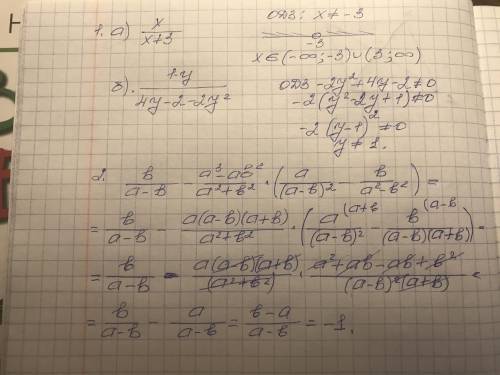 1. а) x/(x+3) ОДЗ: x ≠ -3
-3
x ∈ (-∞; -3) ∪ (3; ∞)
б). (1-y)/(4y-2-2y²) ОДЗ -2y²+4y-2≠0
-2(y²-2y+1)≠0
-2(y-1)²≠0
y≠1.
2. b/(a-b) - (a³-ab²)/(a²+b²) · (a/(a-b)² - b/(a²-b²)) =
= b/(a-b) - a(a-b)(a+b)/(a²+b²) · (a (a+b/(a-b)² - b (a-b/(a-b)(a+b)) =
= b/(a-b) - a(a-b)(a+b)/(a²+b²) · (a²+ab-ab+b²)/((a-b)²(a+b)) =
= b/(a-b) - a/(a-b) = (b-a)/(a-b) = -1.